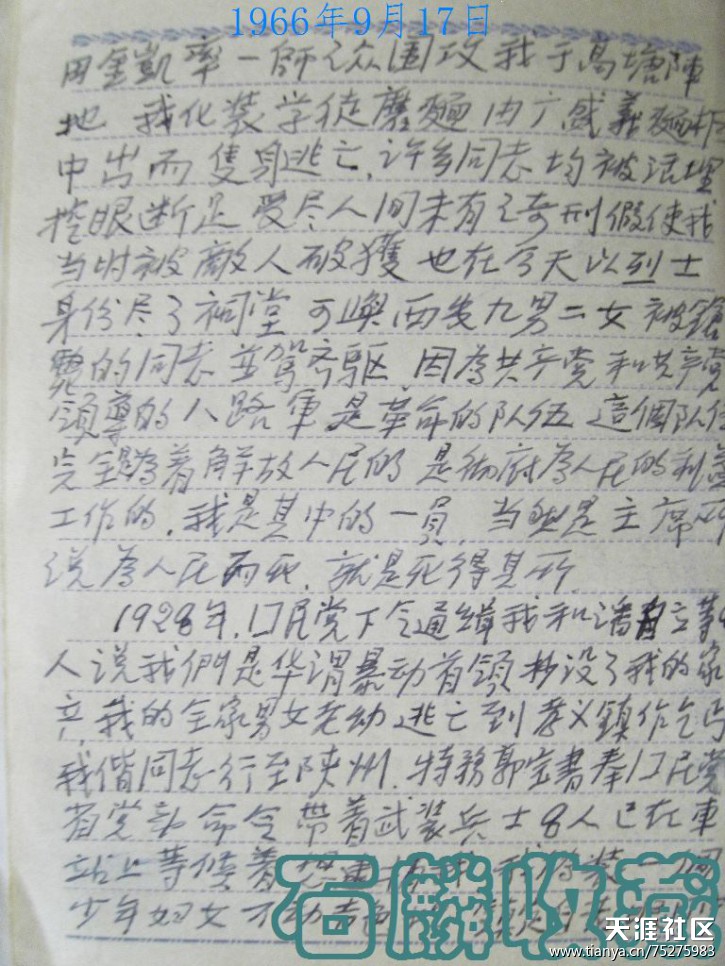 1966年9月17日
田金凯率一师之众围攻我于高塘陣
地 我化装学徒磨麵由广盛義麵柜
中出而隻身逃亡,许多同志均被活埋
挖眼断足 受尽人间未有之奇刑假使我
当时被敵人破獲 也在今天以烈士
身份尽了祠堂 可與西安九男二女被鎗
毙的同志並駕齐驱 因為共产党和共产党
领导的八路軍是革命的队伍 這個队伍
完全為着解放人民的 是彻底為人民的利益
工作的.我是其中的一員,当然是主席所
说為人民而死,就是死得其所,
1928年,囗民党下令通缉我和潘自立等
人说我們是华渭暴动首领 抄没了我的家
产,我的全家男女老幼 逃亡到孝义鎮作乞丐
我偕同志行至陕州.特務郭宝書奉囗民党
省党部命令 带着武装兵士8人已在車
站上等候着 我 我 装一個
少年妇女不动声色
石麟收藏
天涯社区
www.tianya.cn/75275983